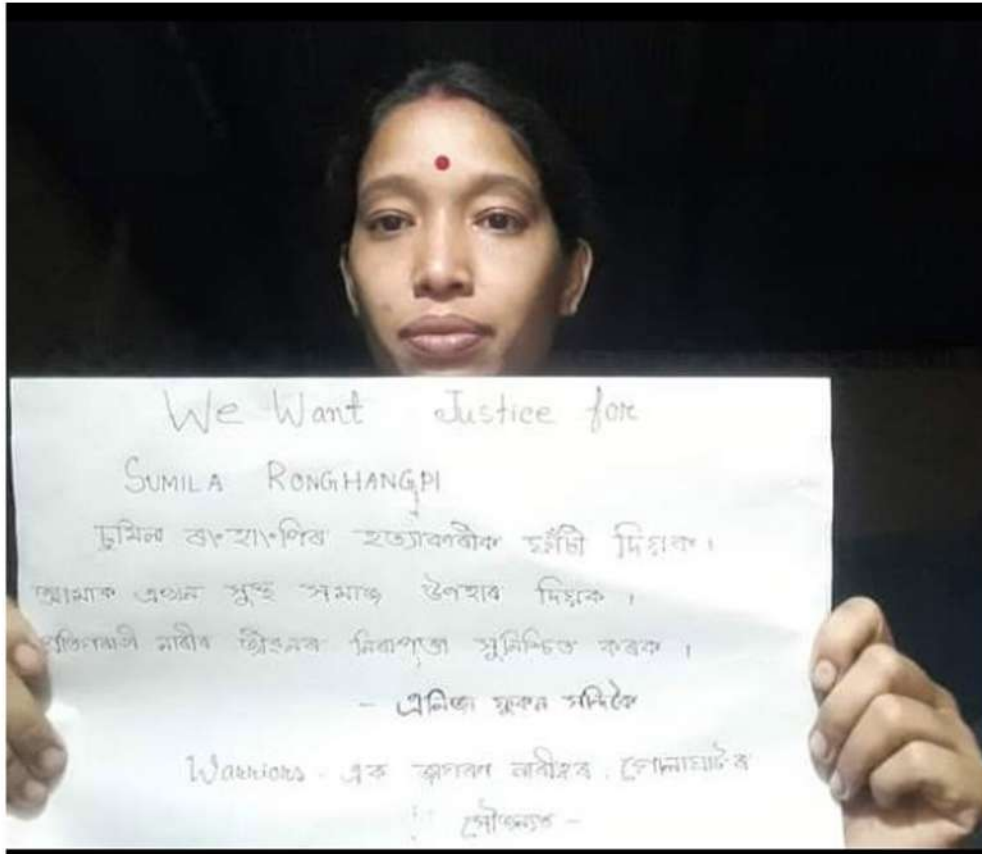 We Want Justice for
SUMILA RONGHANGPI
চুমিলা ৰংহাংপিৰ হত্যাকাৰীক ফাঁচী দিয়ক।
আমাক এখন সুস্থ সমাজ উপহাৰ দিয়ক।
প্ৰতিগৰাকী নাৰীৰ জীৱনৰ নিৰাপত্তা সুনিশ্চিত কৰক।
- এলিজা ফুকন সন্দিকৈ
Warriors - এক জাগৰণ নাৰীত্বৰ, গোলাঘাটৰ
সৌজন্যত -